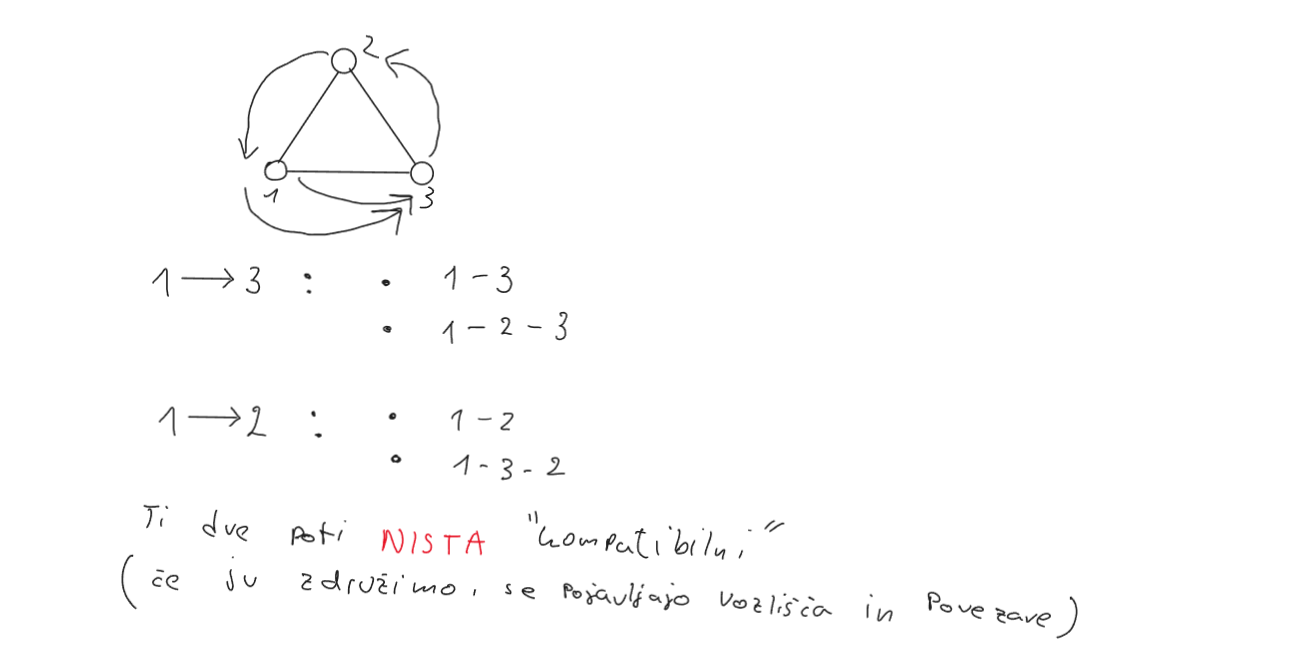 2
1
3
1 → 3 : • 1 - 3
• 1 - 2 - 3
1 → 2 : • 1 - 2
• 1 - 3 - 2
Ti dve poti NISTA "kompatibilni"
(če ju združimo, se pojavljajo vozlišča in povezave)